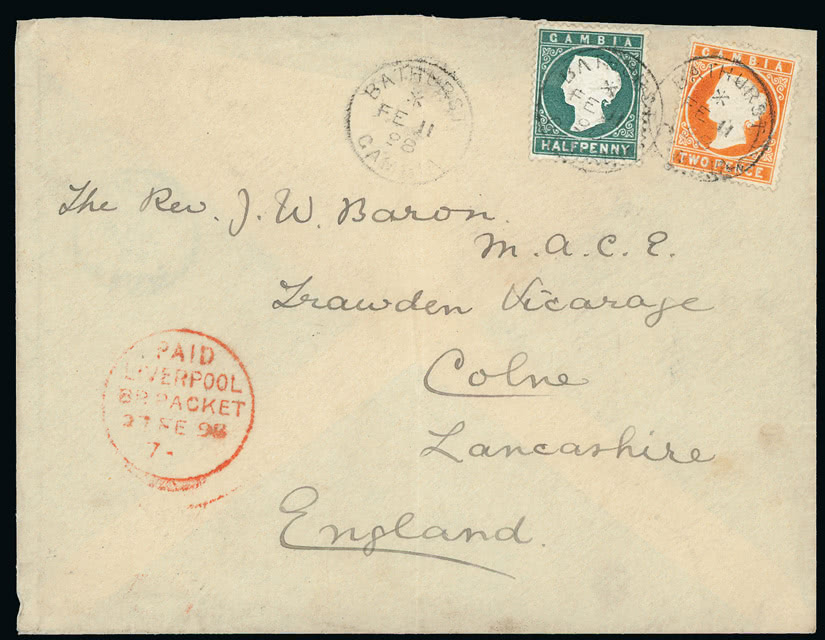 BATHURST
*
FE 11
98
GAM
GAMBIA
HALFPENNY
BAT
FE
GAMBIA
TWO PENCE
BATHURST
*
FE 11
The Rev. J. W. Baron.
M. A. C. E.
Trawden Vicarage
Colne
Lancashire
England.
PAID
LIVERPOOL
BR PACKET
27 FE 98
7-